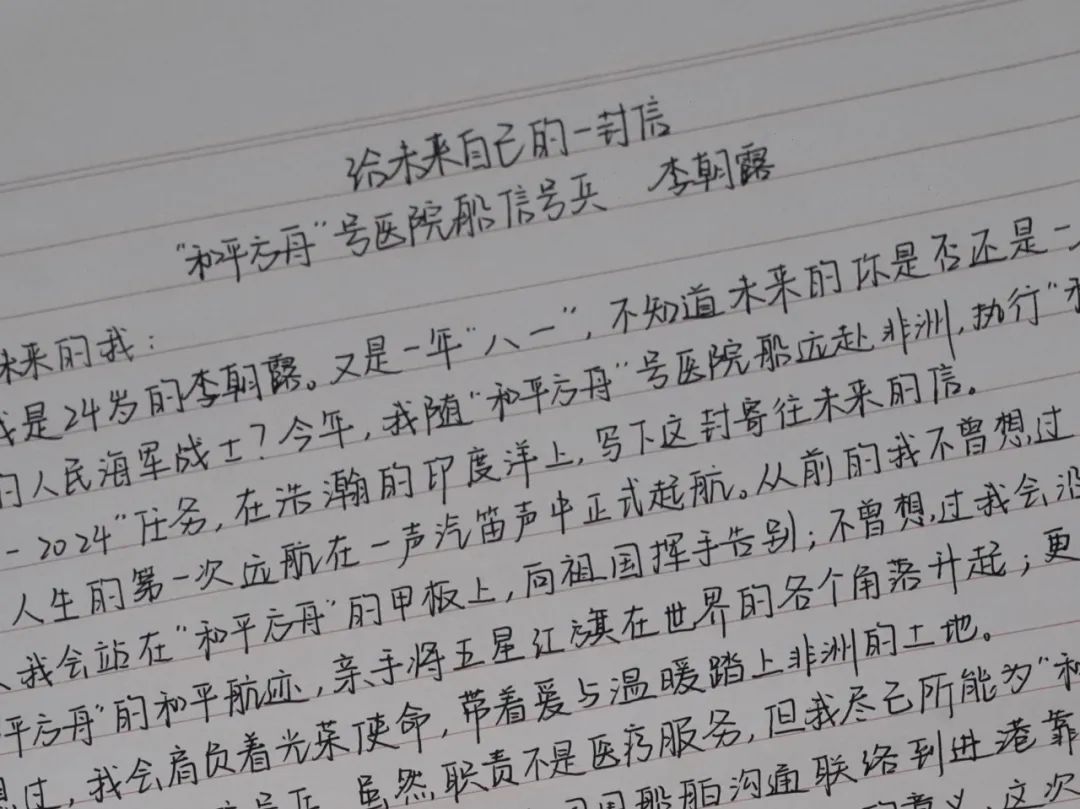 给未来自己的一封信
“和平方舟”号医院船信号兵 李朝露
未来的我：
我是24岁的李朝露。又是一年“八一”，不知道未来的你是否还是一
的人民海军战士？今年，我随“和平方舟”号医院船远赴非洲，执行“和
-2024”任务，在浩瀚的印度洋上，写下这封寄往未来的信。
人生的第一次远航在一声汽笛声中正式起航。从前的我不曾想过
我会站在“和平方舟”的甲板上，向祖国挥手告别；不曾想过我会沿
平方舟”的和平航迹，亲手将五星红旗在世界的各个角落升起；更
想过，我会肩负着光荣使命，带着爱与温暖踏上非洲的土地。
号兵，虽然职责不是医疗服务，但我尽己所能为“和
国船舶沟通联络到进港靠
的意义，这次